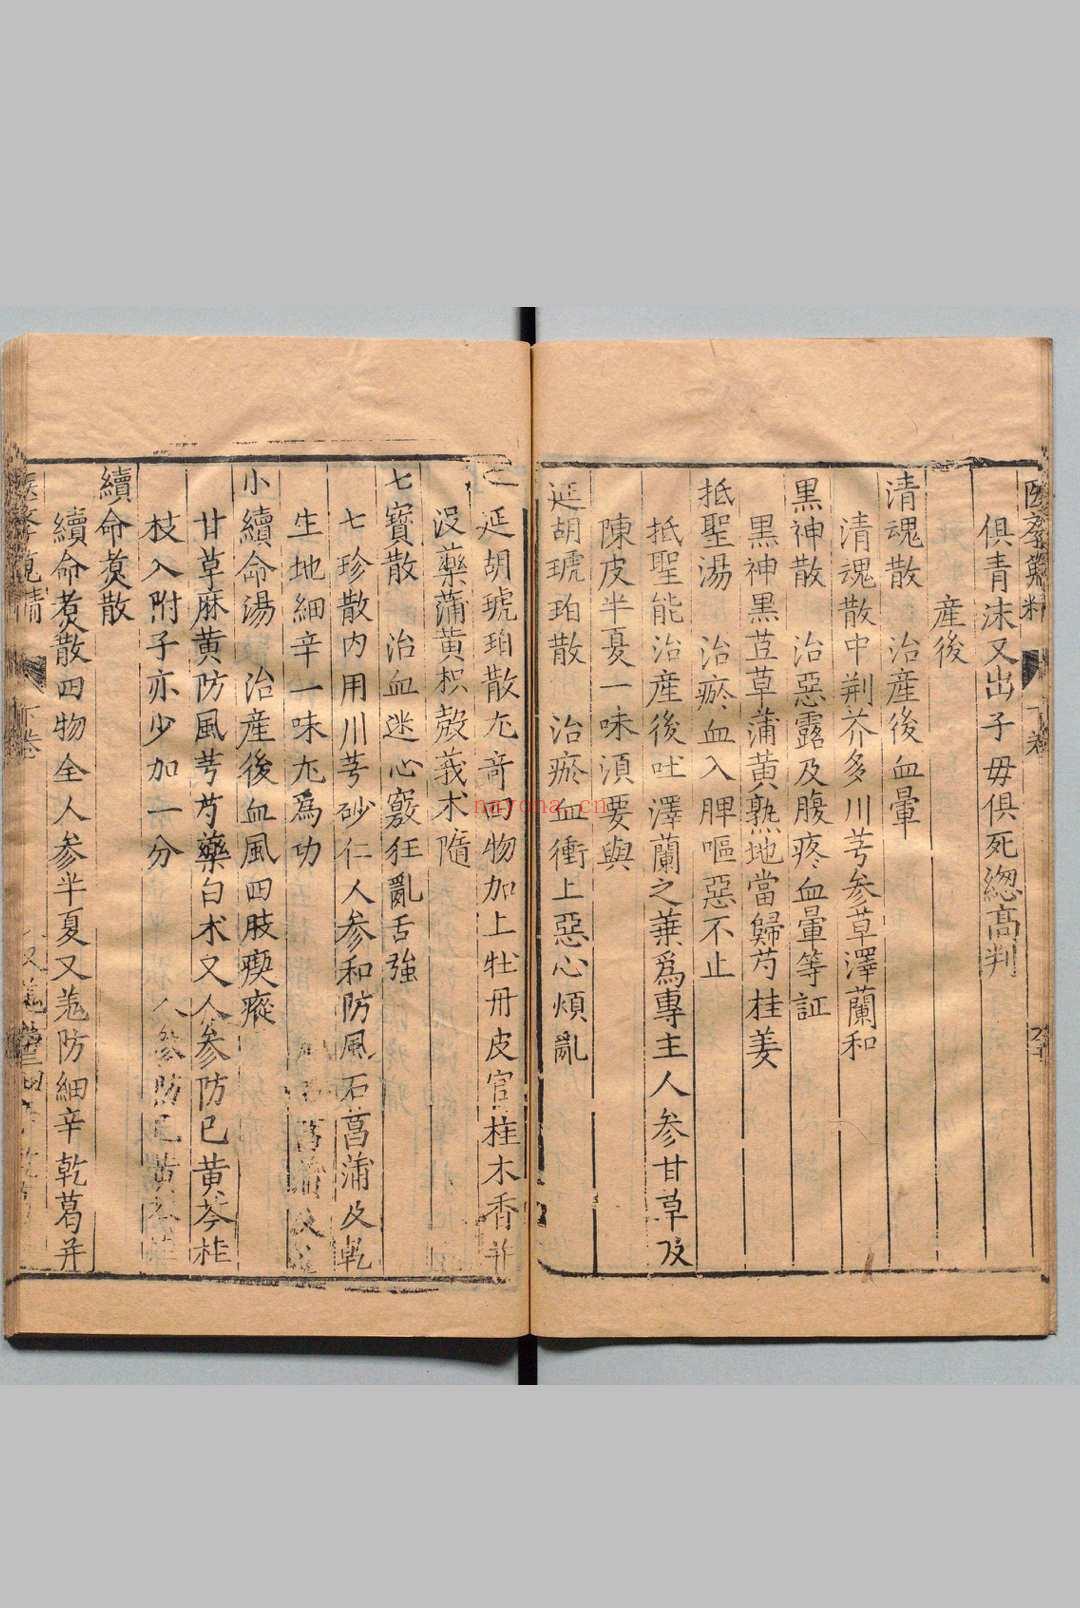 俱青沫又出子毋俱死緫髙判
産後
清魂散 治産後血暈
清魂散中荆芥多川芎参草澤蘭和
黒神散 治惡露及腹疼血暈等証
黒神黒荳草蒲黄熟地當歸芍桂姜
抵聖湯 治瘀血入脾嘔惡不止
抵聖能治産後吐澤蘭之葉爲專主人参甘草及
陳皮半夏一味湏要與
延胡琥珀散 治瘀血衝上惡心煩亂
延胡琥珀散尢竒四物加上牡丹皮官桂木香并
没藥蒲黄枳殼莪术隨
七寳散 治血迷心竅狂亂舌強
七珍散内用川芎砂仁人參和防風石菖蒲及乹
生地細辛一味尢爲功
小續命湯 治産後血風四肢瘈瘲
甘草麻黄防風芎芍藥白术又人參防已黄芩桂
枝入附子亦少加一分
續命煑散
續命煑散四物全人參半夏又羗防細辛乾葛并
nayona.cn